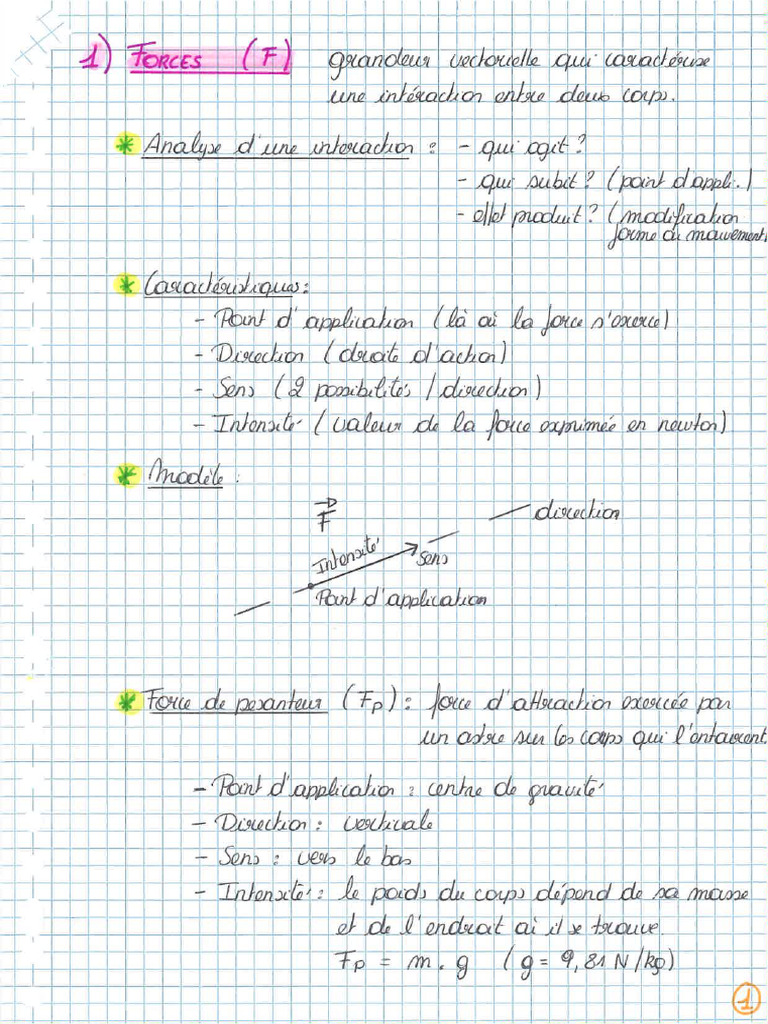 1) FORCES (F) grandeur vectorielle qui caractérise
une intéraction entre deux corps.
* Analyse d'une interaction : - qui agit ?
- qui subit ? (point d'appli.)
- effet produit ? (modification
forme ou mouvement)
* Caractéristiques :
- Point d'application (là où la force s'exerce)
- Direction (droite d'action)
- Sens (2 possibilités / direction)
- Intensité (valeur de la force exprimée en newton)
* Modèle :
F
direction
Intensité
Sens
Point d'application
* Force de pesanteur (Fp) : force d'attraction exercée par
un astre sur les corps qui l'entourent.
- Point d'application : centre de gravité
- Direction : verticale
- Sens : vers le bas
- Intensité : le poids du corps dépend de sa masse
et de l'endroit où il se trouve.
Fp = m . g (g = 9,81 N/kg)
1